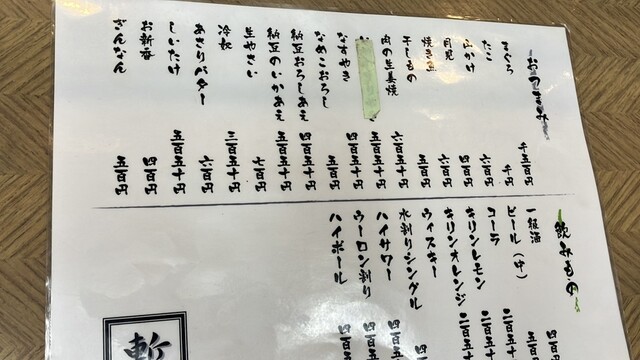 おつまみ
まぐろ 千五百円
たこ 千円
山かけ 六百円
月見 四百円
焼き魚 五百円
干しもの 五百円
肉の生姜焼 六百五十円
五百五十円
なすやき 四百五十円
なめこおろし 五百円
納豆おろしあえ 四百五十円
納豆のいかあえ 五百五十円
生やさい 七百円
冷奴 三百五十円
あさりバター 六百円
しいたけ 五百五十円
お新香 四百円
ぎんなん 五百円
飲みもの
四百
ビール（中） 五百
コーラ 二百五十
キリンレモン 二百五十
キリンオレンジ 二百五十
ウィスキー 四百
水割りシングル 四百
ハイサワー 四百
ウーロン割り 四百
ハイボール